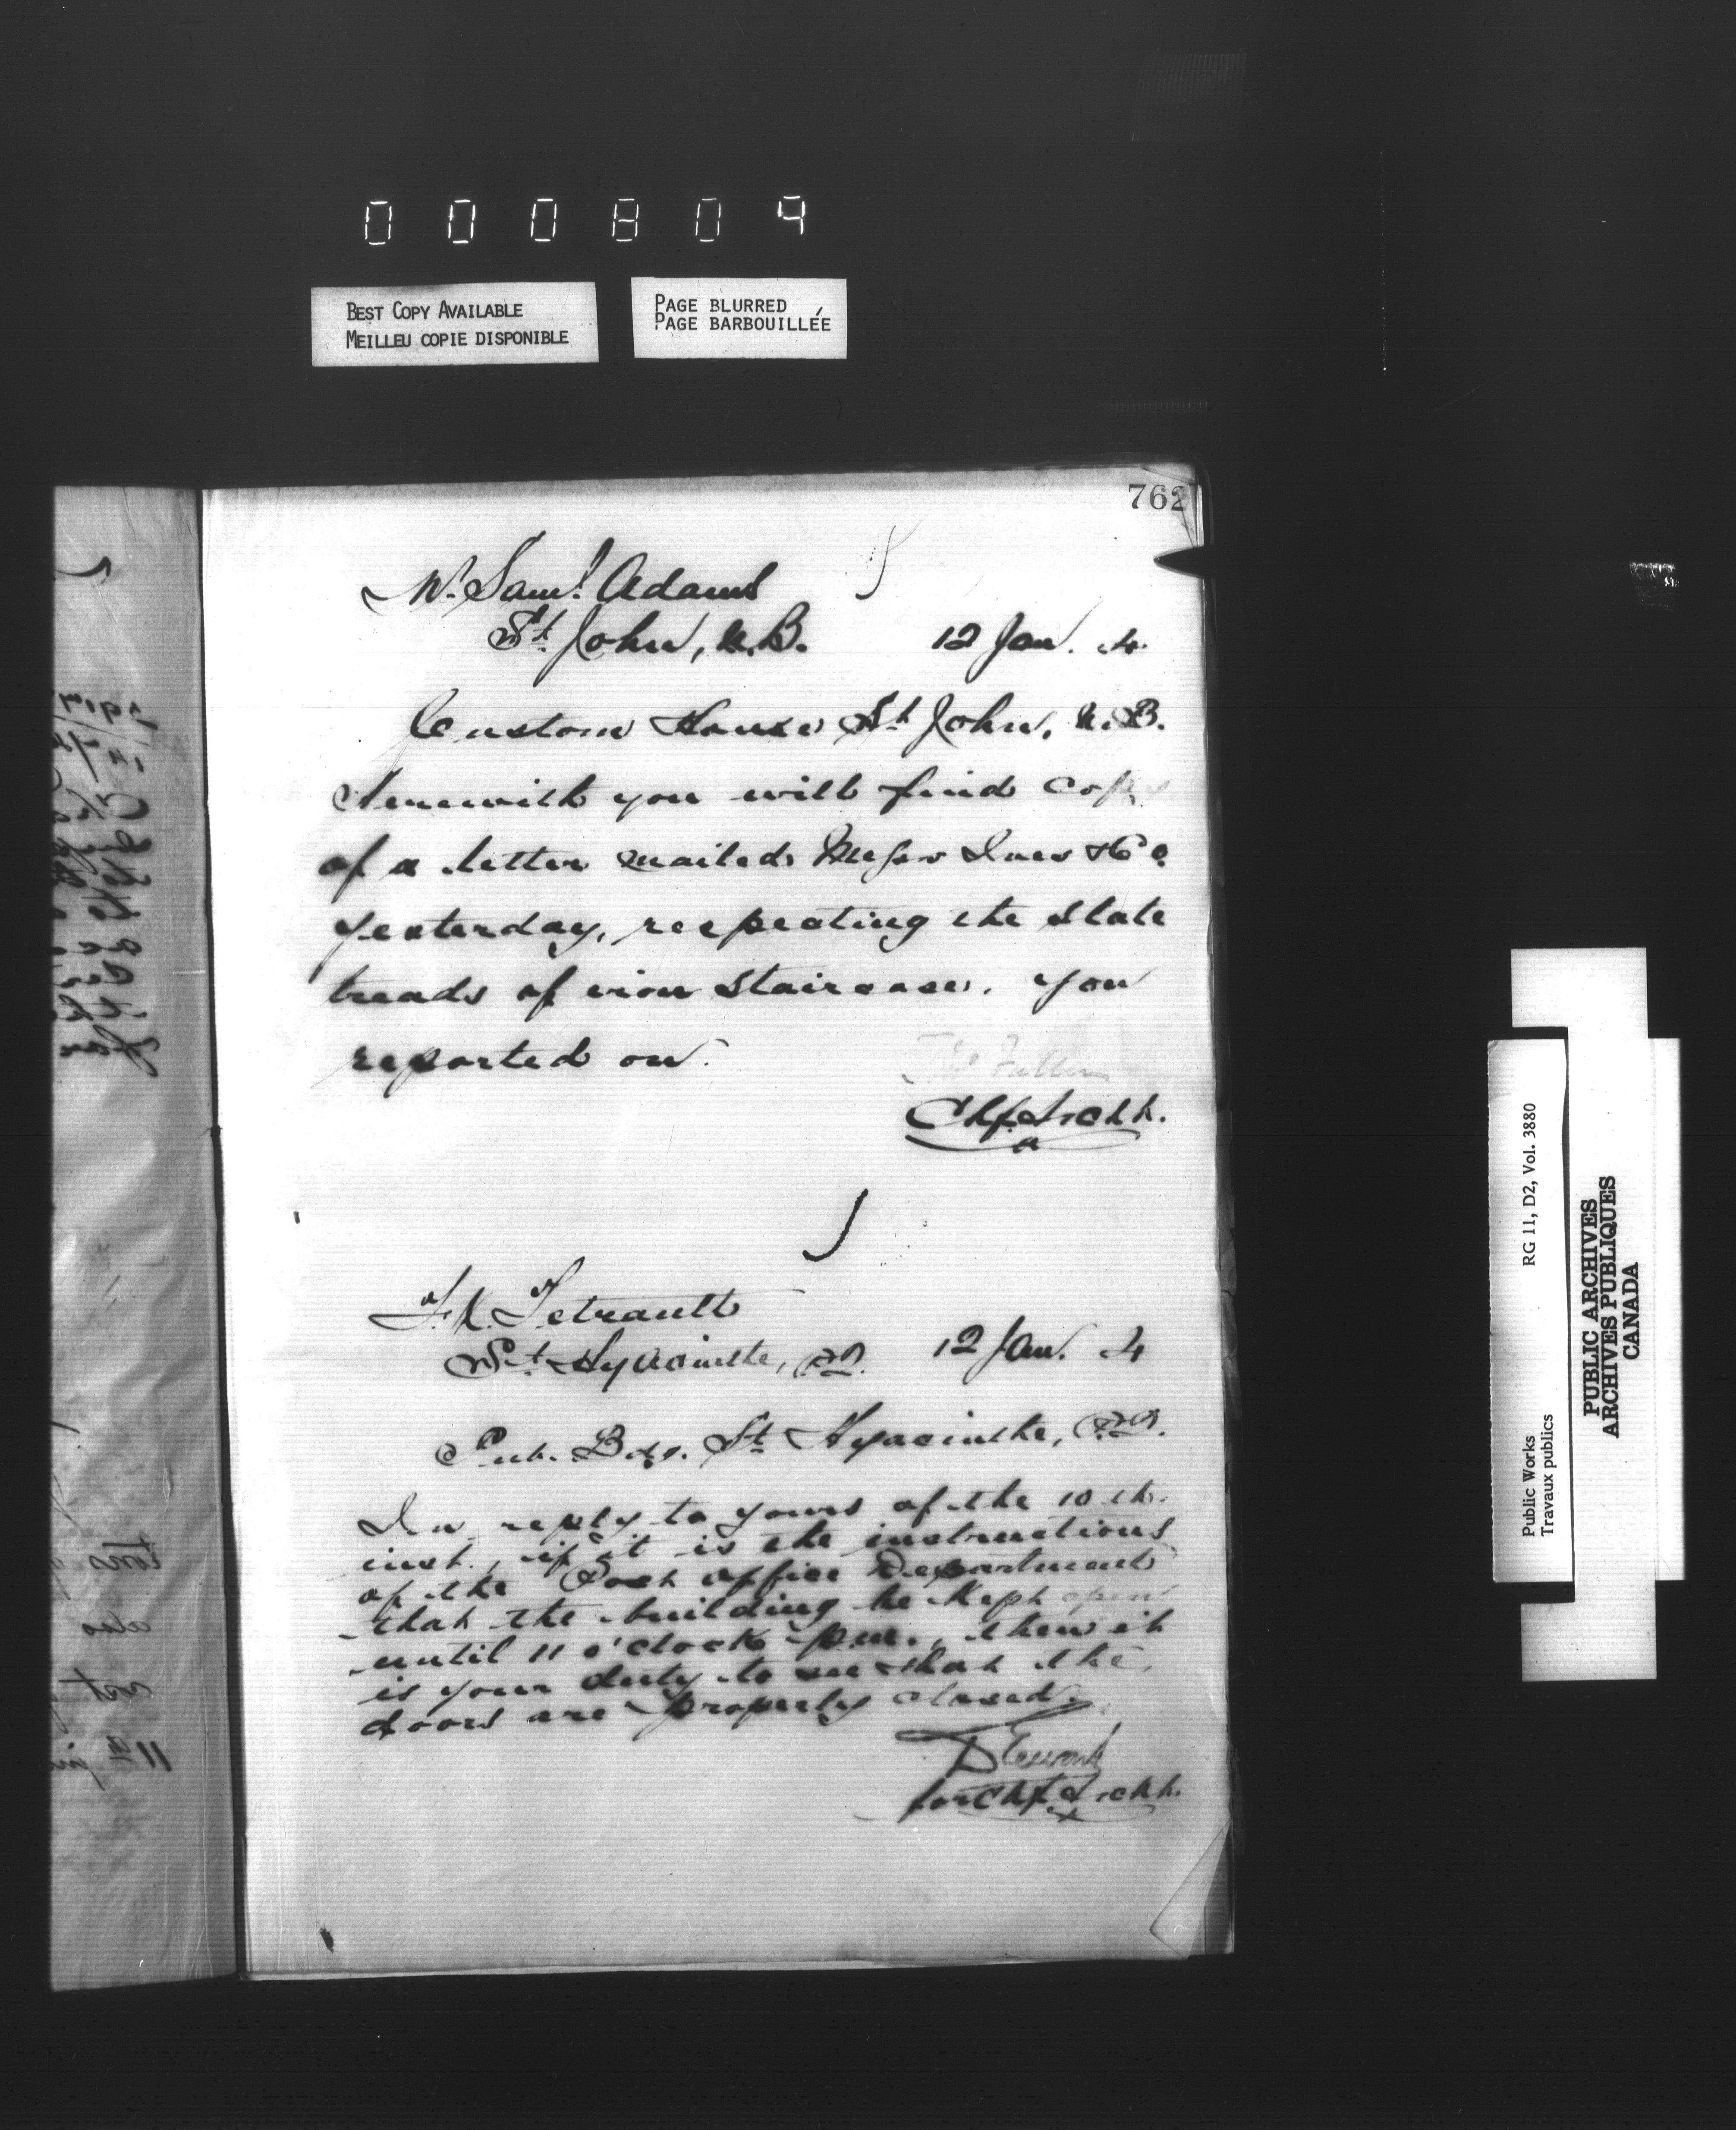 000804
BEST COPY AVAILABLE
MEILLEU COPIE DISPONIBLE
PAGE BLURRED
PAGE BARBOUILLÉE
762
Saml. Adams
St. John, N.B. 12 Jan. 4
Custom House St. John, N.B.
Herewith you will find copy
of a letter mailed Messrs Ives & Co.
yesterday, respecting the slate
treads of iron staircase. you
reported on.
Thos Fuller
Chf Archt.
F.X. Tetrault
St. Hyacinthe, P.Q. 12 Jan. 4
Pub. Bdg. St. Hyacinthe, P.Q.
In reply to yours of the 10th.
inst., if it is the instructions
of the Post office Department
that the building be kept open
until 11 o'clock p.m., then it
is your duty to see that the
doors are properly closed.
D Ewart
for Chf Archt.
Public Works
Travaux publics
RG 11, D2, Vol. 3880
PUBLIC ARCHIVES
ARCHIVES PUBLIQUES
CANADA